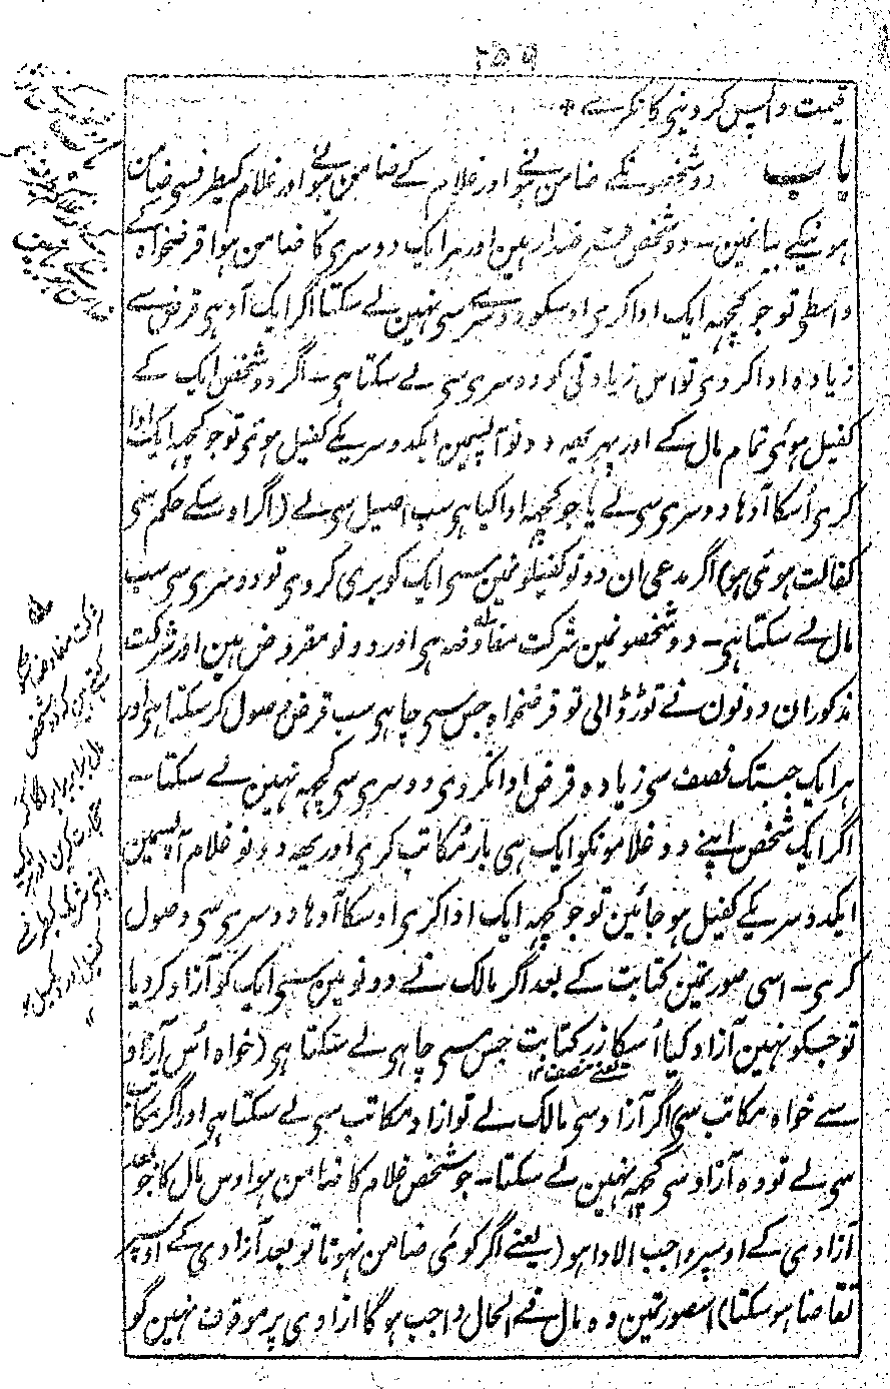 ۲۵۹
قیمت واپس کر دینی کا نکرے *
باب دو شخصونکے ضامن ہونے اور غلام کے ضامن ہونے اور غلام کیطرفسی ضامن
ہونیکے بیانمین ۔ دو شخص قرضدار ہین اور ہر ایک دوسری کا ضامن ہوا قرضخواہ کے
واسطی تو جو کچھہ ایک ادا کری اوسکو دوسرے سی نہین لے سکتا اگر ایک آدہی قرض سے
زیادہ ادا کردی تو اس زیادتی کو دوسری سی لے سکتا ہی ۔ اگر دو شخص ایک کے
کفیل ہوئی تمام مال کے اور پہر یہہ دونو آپسمین ایکدوسریکے کفیل ہوئی تو جو کچھہ ایک ادا
کری اُسکا آدہا دوسری سی لے یا جو کچھہ ادا کیا ہی سب اصیل سی لے (اگر اوسکے حکم سی
کفالت ہوئی ہو) اگر مدعی ان دونو کفیلونمین سی ایک کو بری کردی تو دوسری سی سب
مال لے سکتا ہی ۔ دو شخصونمین شرکت مفاوضہ ہی اور دونو مقروض ہین اور شرکت
مذکور ان دونون نے توڑ ڈالی تو قرضخواہ جس سی چاہی سب قرض وصول کر سکتا ہی اور
ہر ایک جبتک نصف سی زیادہ قرض ادا نکردی دوسری سی کچھہ نہین لے سکتا ۔
اگر ایک شخص اپنے دو غلامونکو ایک ہی بار مُکاتب کری اور یہہ دونو غلام آپسمین
ایکدوسریکے کفیل ہو جائین تو جو کچھہ ایک ادا کری اوسکا آدہا دوسری سی وصول
کری ۔ اسی صورتمین کتابت کے بعد اگر مالک نے دونو مین سی ایک کو آزاد کردیا
تو جسکو نہین آزاد کیا اُسکا زر کتابت جس سی چاہی لے سکتا ہی (خواہ اُس آزاد
یعنے نصف ۱۲
سے خواہ مکاتب سی) اگر آزاد سی مالک لے تو ازاد مکاتب سی لے سکتا ہی اور اگر مکاتب
سی لے تو وہ آزاد سی کچھہ نہین لے سکتا ۔ جو شخص غلام کا ضامن ہو اوس مال کا جو بعد
آزادی کے اوسپر واجب الادا ہو (یعنے اگر کوئی ضامن نہوتا تو بعد آزادی کے اوسپر
تقاضا ہو سکتا) اسصورتمین وہ مال فے الحال واجب ہوگا ازادی پر موقوف نہین گو
شرکت مفاوضہ
کہتے ہین کہ دو شخص
مال برابر برابر لگا کر
تجارت کرین اور ہر ایک
اپنی شریک کیطرف سے
کفیل اور وکیل